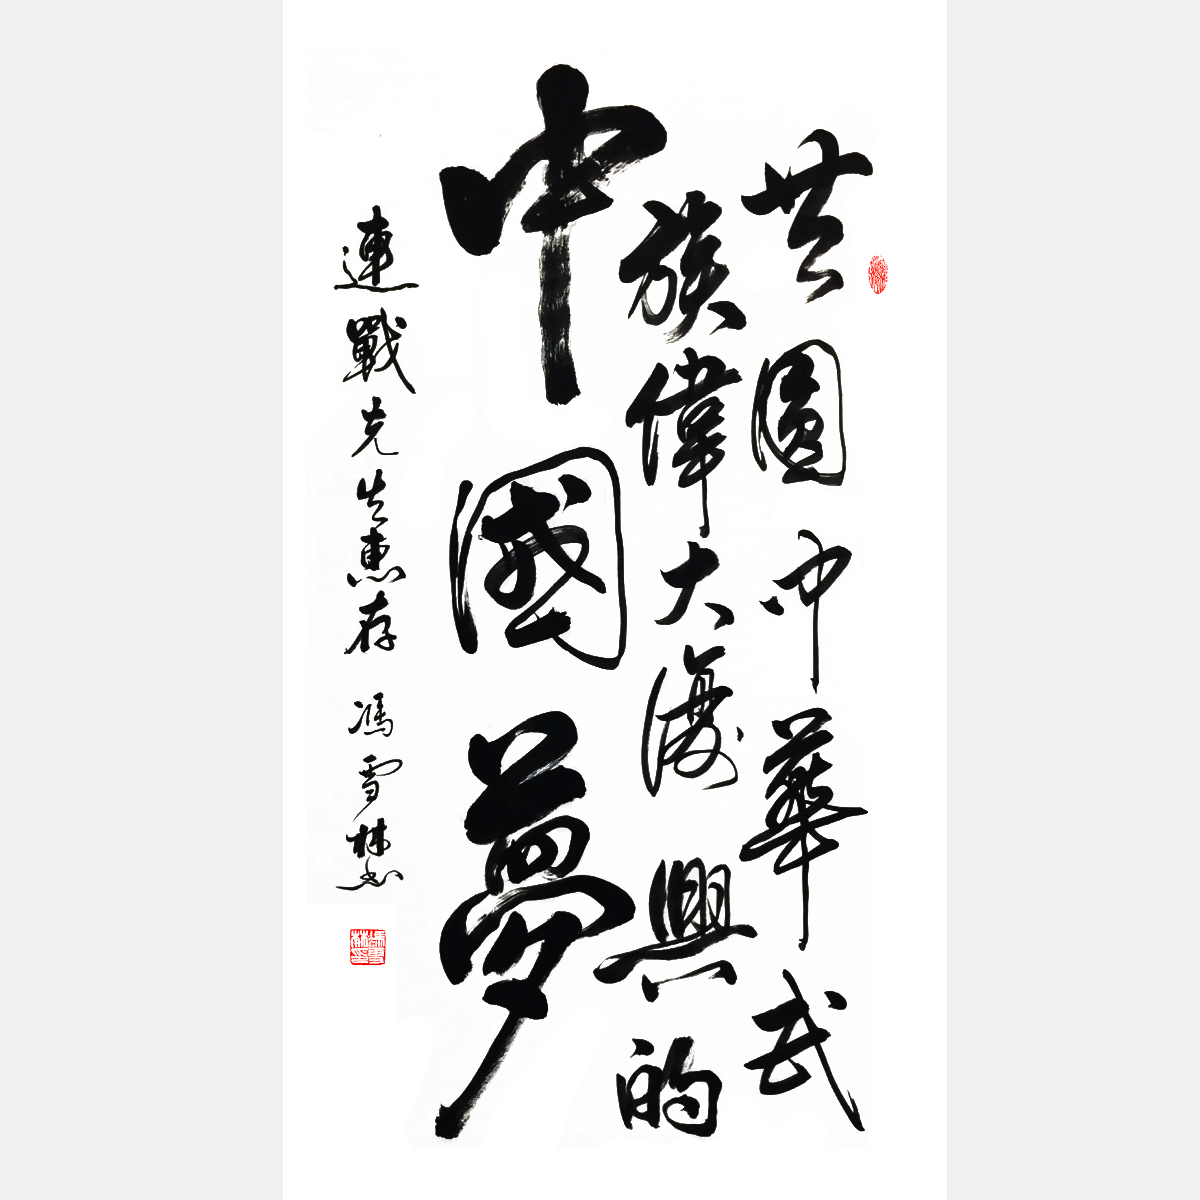 共圓中華民
族偉大復興的
中國夢
連戰先生惠存 馮雪林書
馮雪林印